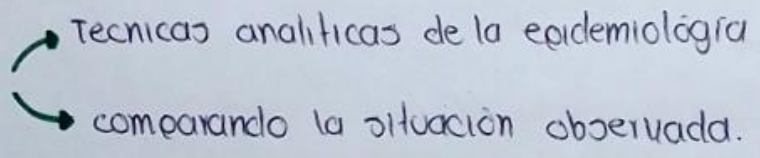 Tecnicas analiticas de la epidemiológia
comparando la situación observada.